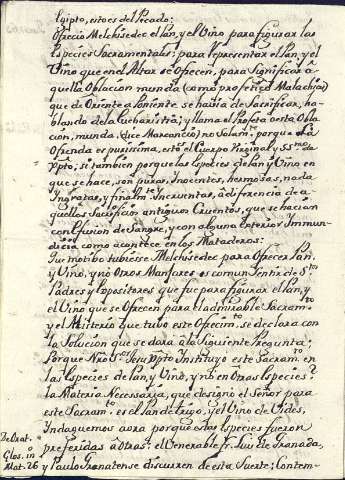 Egipto, esto es del Pecado:
Ofrecio Melchisedec el Pan, y el Vino para figurar las
Especies Sacramentales: para Representar el Pan, y el
Vino que en el Altar se Ofrecen, para Significar a
quella Oblacion munda (como profetisó Malachias)
que de Oriente a Poniente se había de Sacrificar, ha-
blando de la Eucharistia; y llama el Profeta esta Obla-
cion, munda, (dice Marcancio) no Solam.te porque esta
Ofrenda es purissima, esto el Cuerpo Virginal y SS.mo de
Xpto; si también porque las Especies de Pan, y Vino en
que se hace, son puras, Inocentes, hermosas, nada
Ingratas, y finalm.te Incruentas, à diferencia de a-
quellos Sacrificios antiguos Cruentos, que se hacian
con Efusion de Sangre, y con alguna Exterior Immun-
dicia como acontece en los Mataderos:
Que motibo tubiese Melchisedec para Ofrecer Pan,
y Vino, y nó Otros Manjares es comun Sentir de S.tos
Padres y Expositores que fue para figurar el Pan, y
el Vino que se Ofrecen para el admirable Sacram.to
y el Misterio que tubo este Ofrecim.to se declara con
la Solucion que se dará a la Siguiente Pregunta;
Porque Nrô S.or Jesu Xpto Instituyo este Sacram.to en
las Especies de Pan, y Vino, y nó en Otras Especies?
la Materia Necessaria, que designó el Señor para
este Sacram.to es el Pan de trigo, y el Vino de Vides,
Indaguemos aora porque estas Especies fueron
preferidas à Otras: el Venerable fr. Luis de Granada,
y Paulo Granatense discurren de esta Suerte; Contem-
Glos. in
Mat. 26